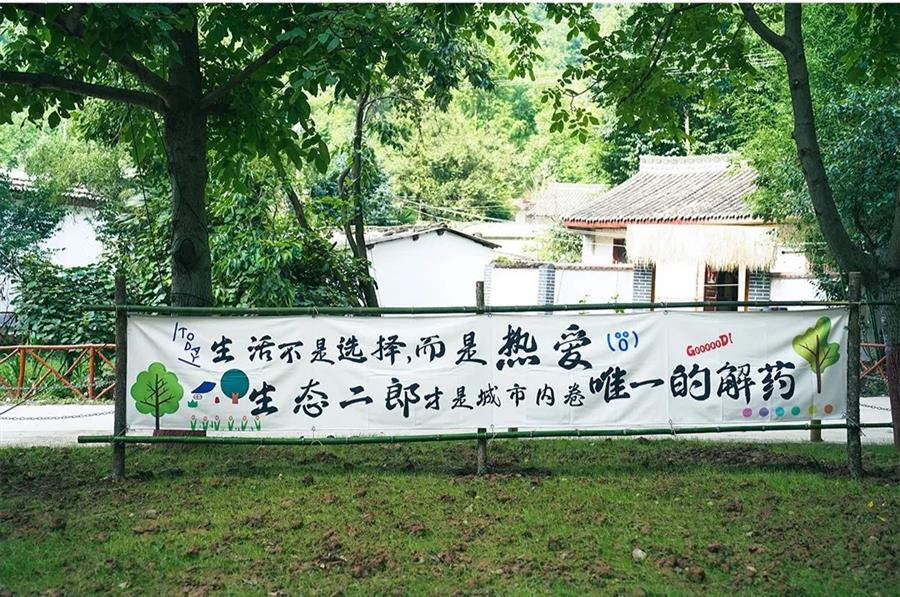 TODAY
生活不是选择,而是热爱
GOOOOOD!
生态二郎才是城市内卷唯一的解药